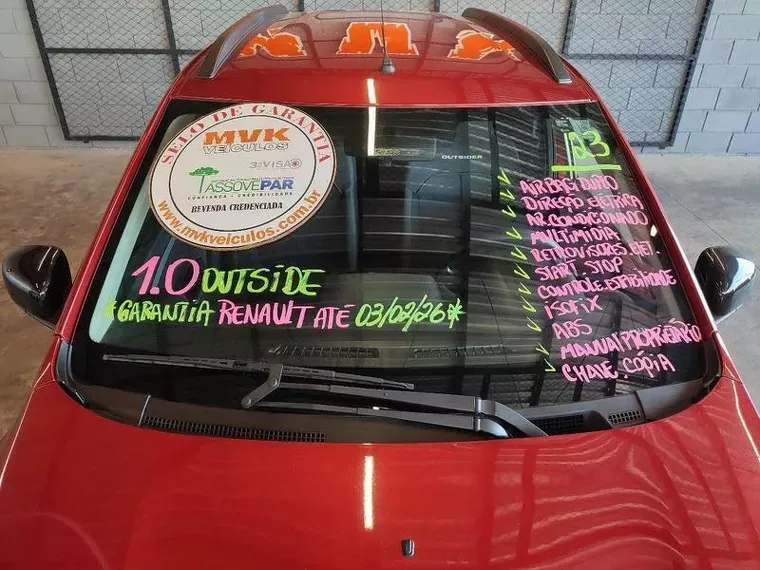 SELO DE GARANTIA
MVK
VEÍCULOS
3ª VISÃO
ASSOVEPAR
CONFIANÇA • CREDIBILIDADE
REVENDA CREDENCIADA
www.mvkveiculos.com.br
OUTSIDER
23
AIRBAG DUPLO
DIREÇÃO ELÉTRICA
AR CONDICIONADO
MULTIMIDIA
RETROVISORES ELET.
START STOP
CONTROLE ESTABILIDADE
ISOFIX
ABS
MANUAL PROPRIETÁRIO
CHAVE CÓPIA
1.0 OUTSIDE
*GARANTIA RENAULT ATÉ 03/02/26*